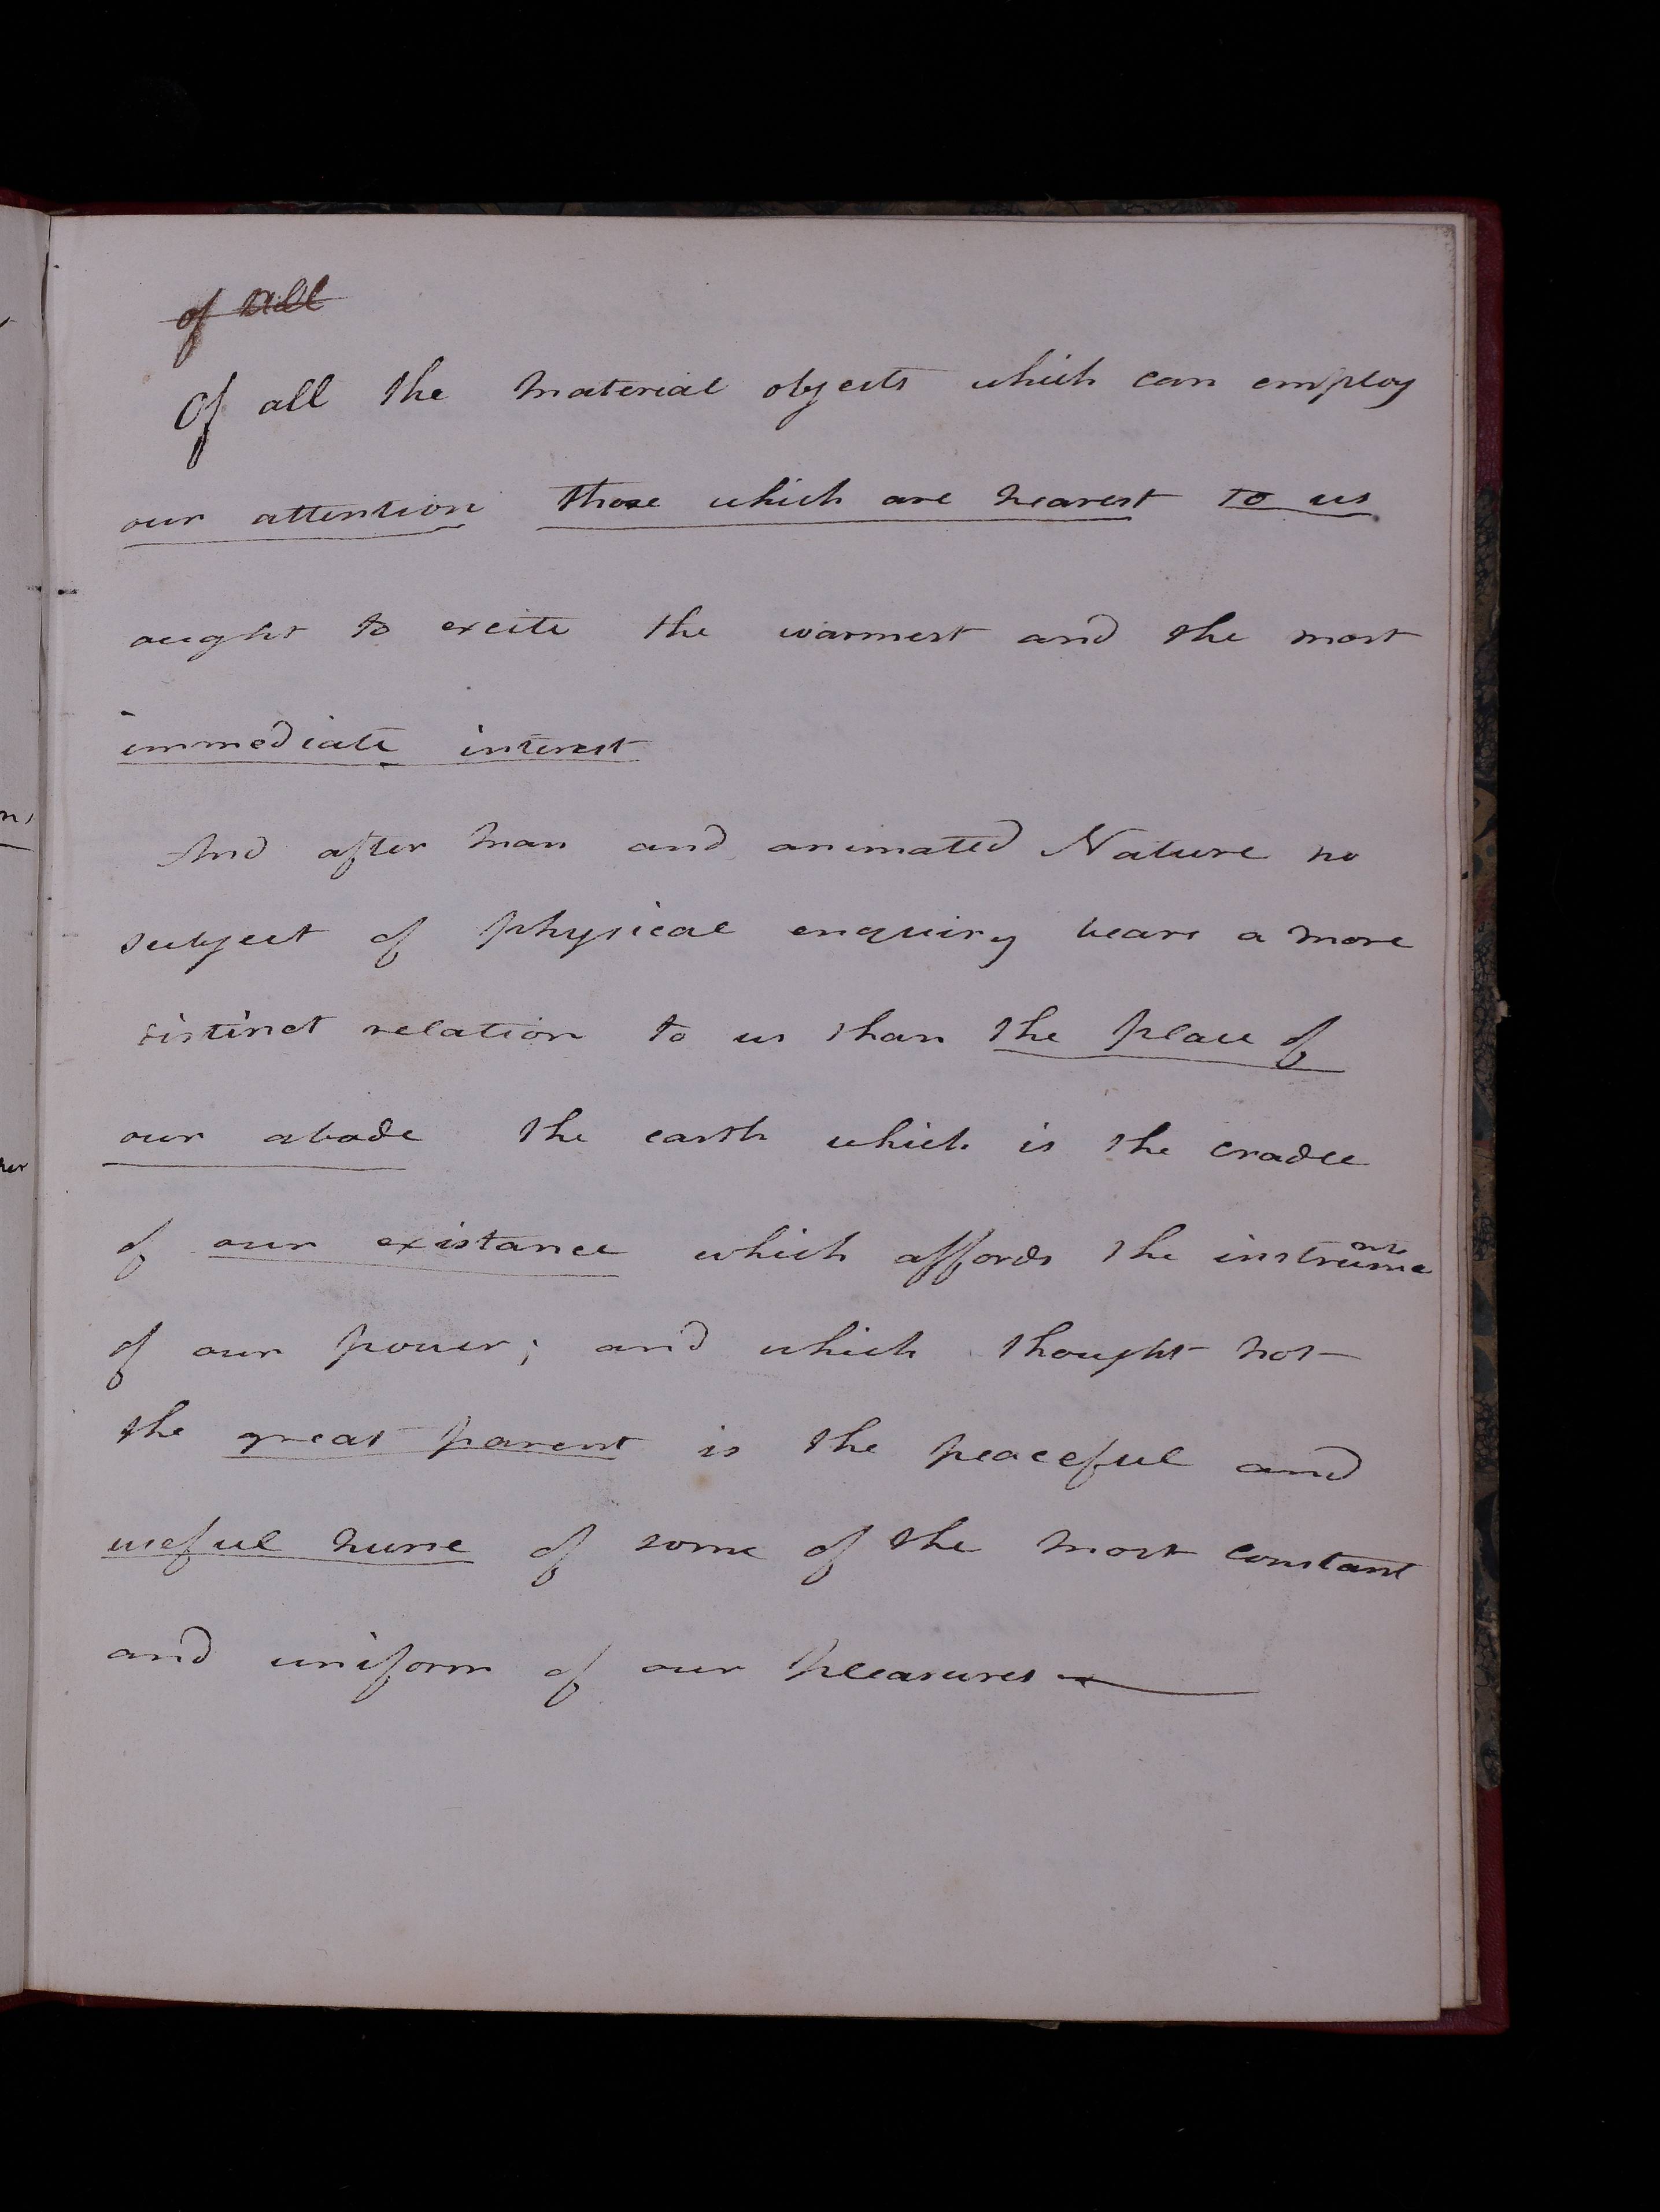 of all
Of all the material objects which can employ
our attention those which are nearest to us
ought to excite the warmest and the most
immediate interest
And after man and animated Nature no
subject of physical enquiry bears a more
distinct relation to us than the place of
our abode the earth which is the cradle
of our existance which affords the instruments
of our power; and which thought not
the great parent is the peaceful and
useful nurse of some of the most constant
and uniform of our pleasures —